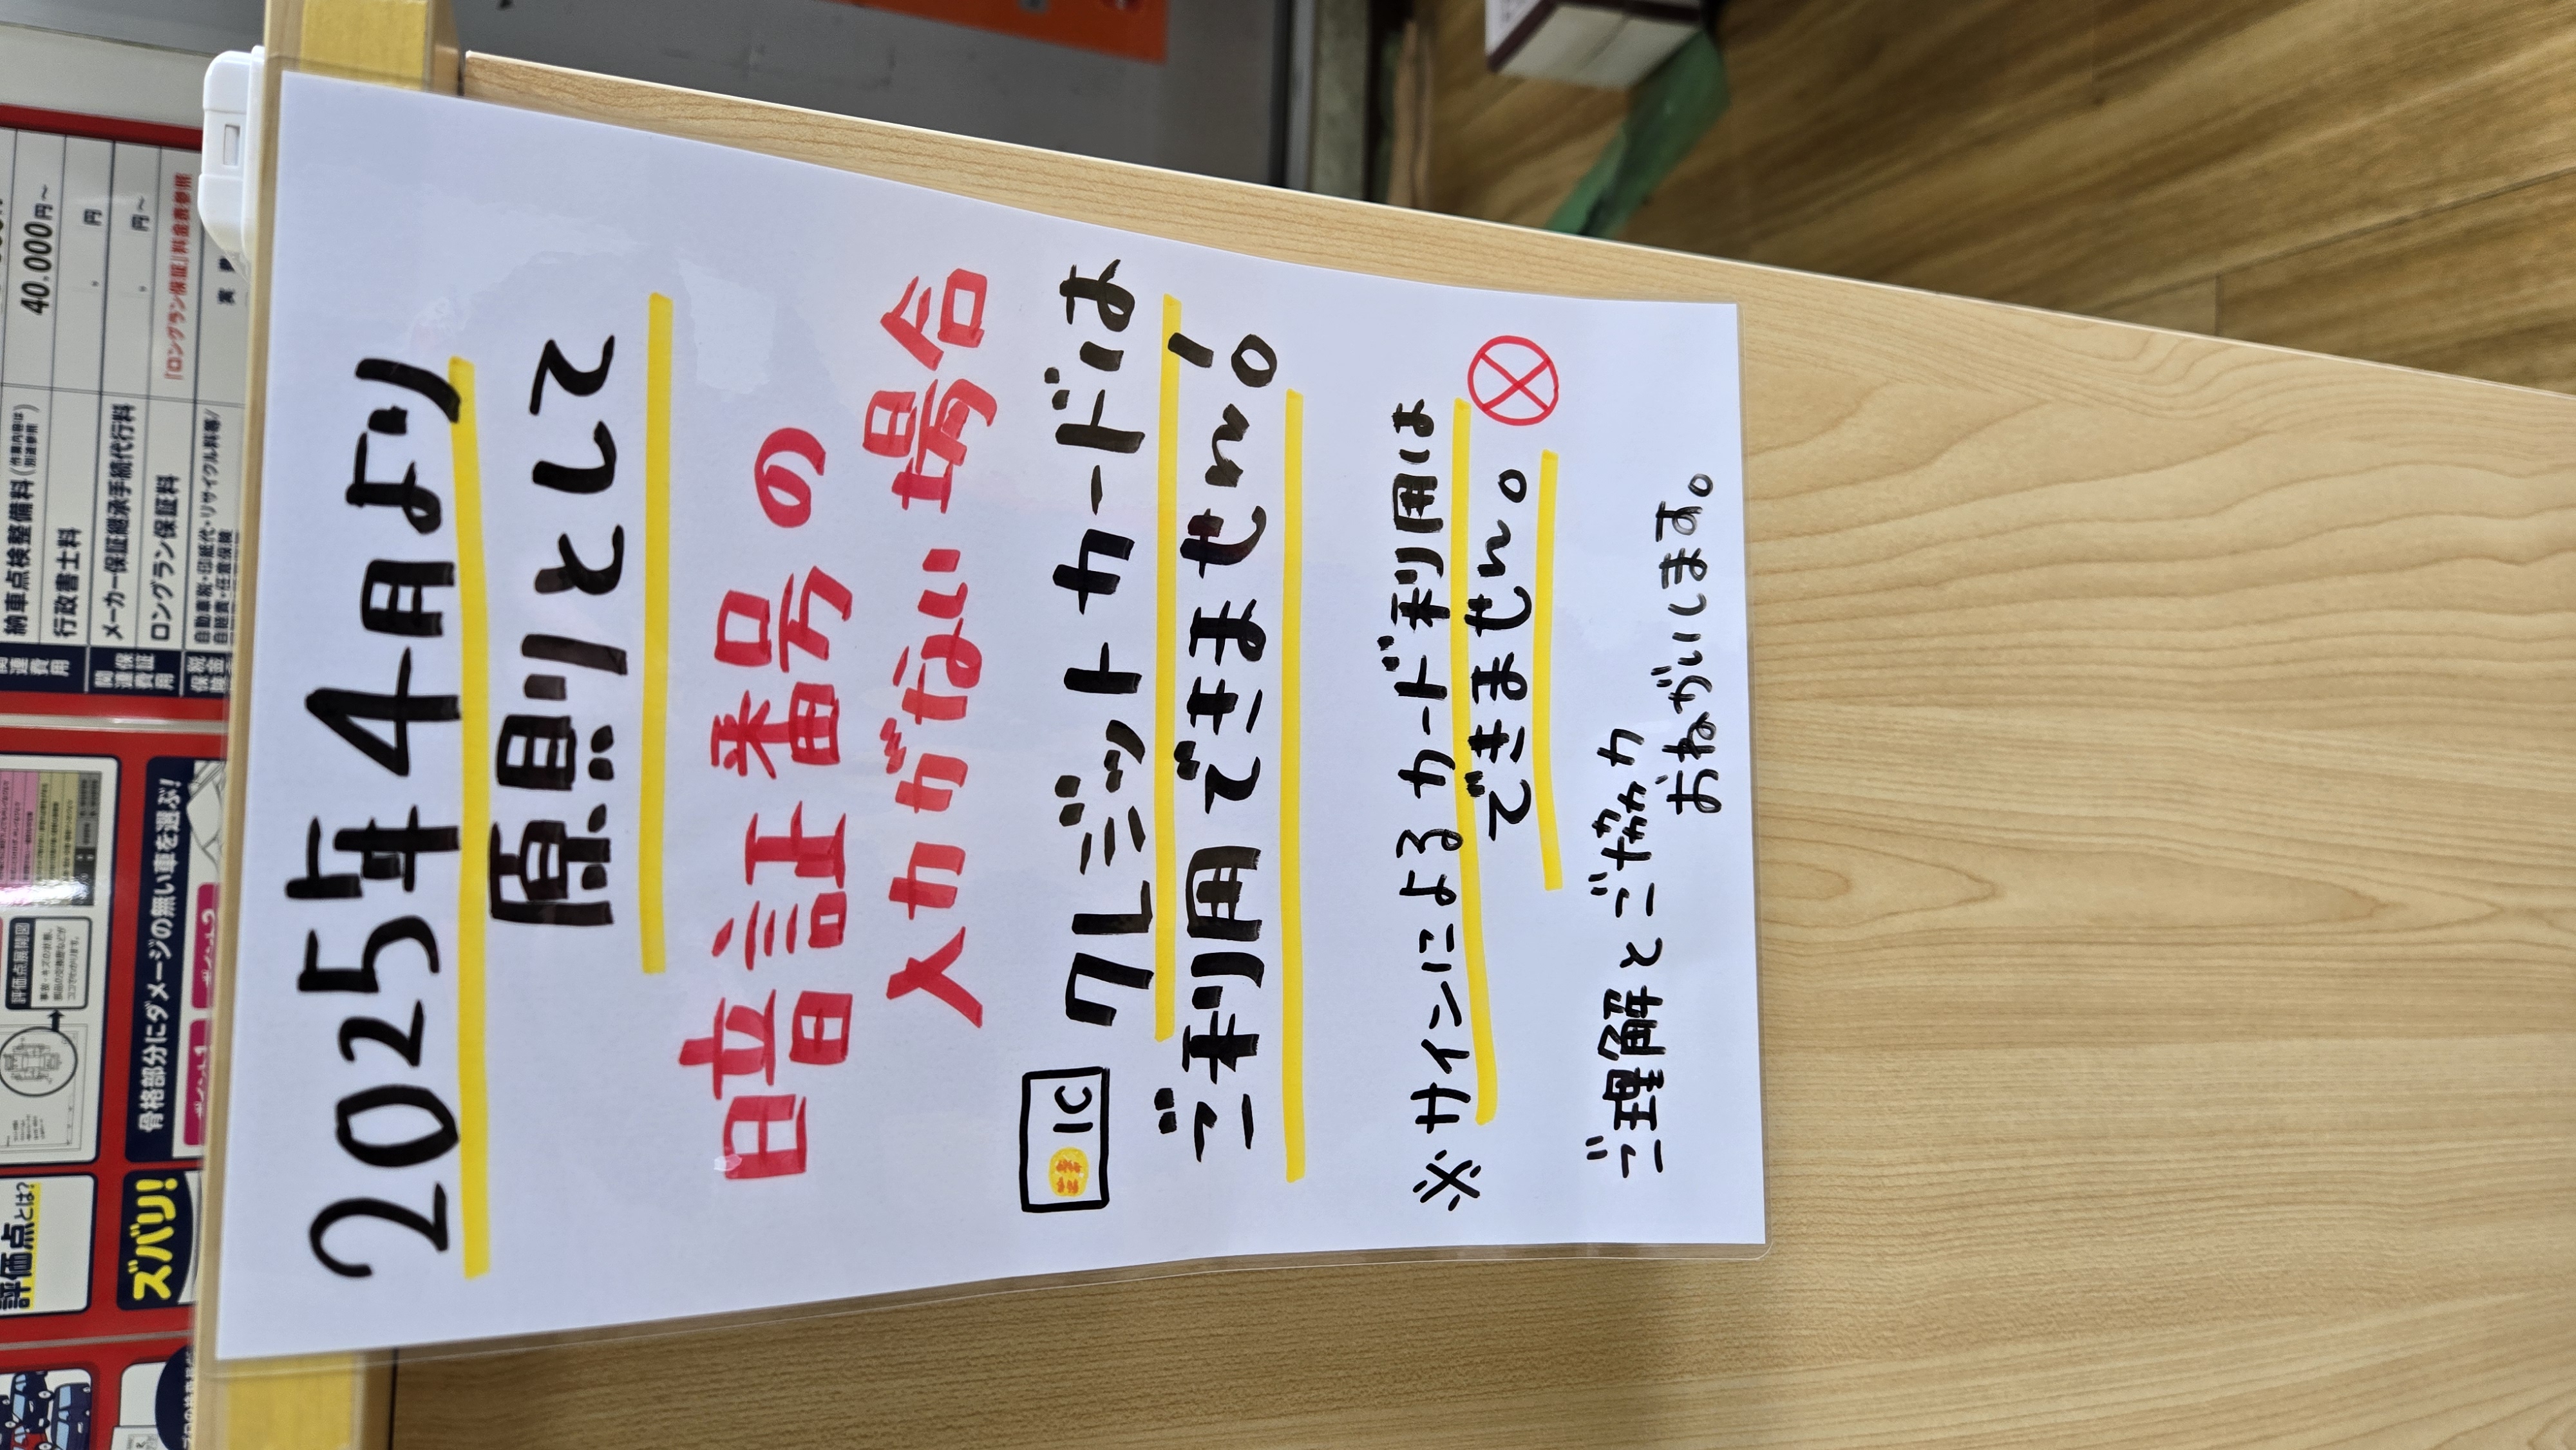 2025年4月より
原則として
暗証番号の
入力がない場合
IC クレジットカードは
ご利用できません。
※サインによるカード利用は
できません。
ご理解とご協力
おねがいします。
40.000円~
納車点検整備料
行政書士料
円
メーカー保証継承手続代行料
円~
ロングラン保証料
「ロングラン保証」料金表参照
自動車税・印紙代・リサイクル料等/
自賠責・任意保険
骨格部分にダメージの無い車を選ぶ!
評価点展開図
評価点とは?
ズバリ!